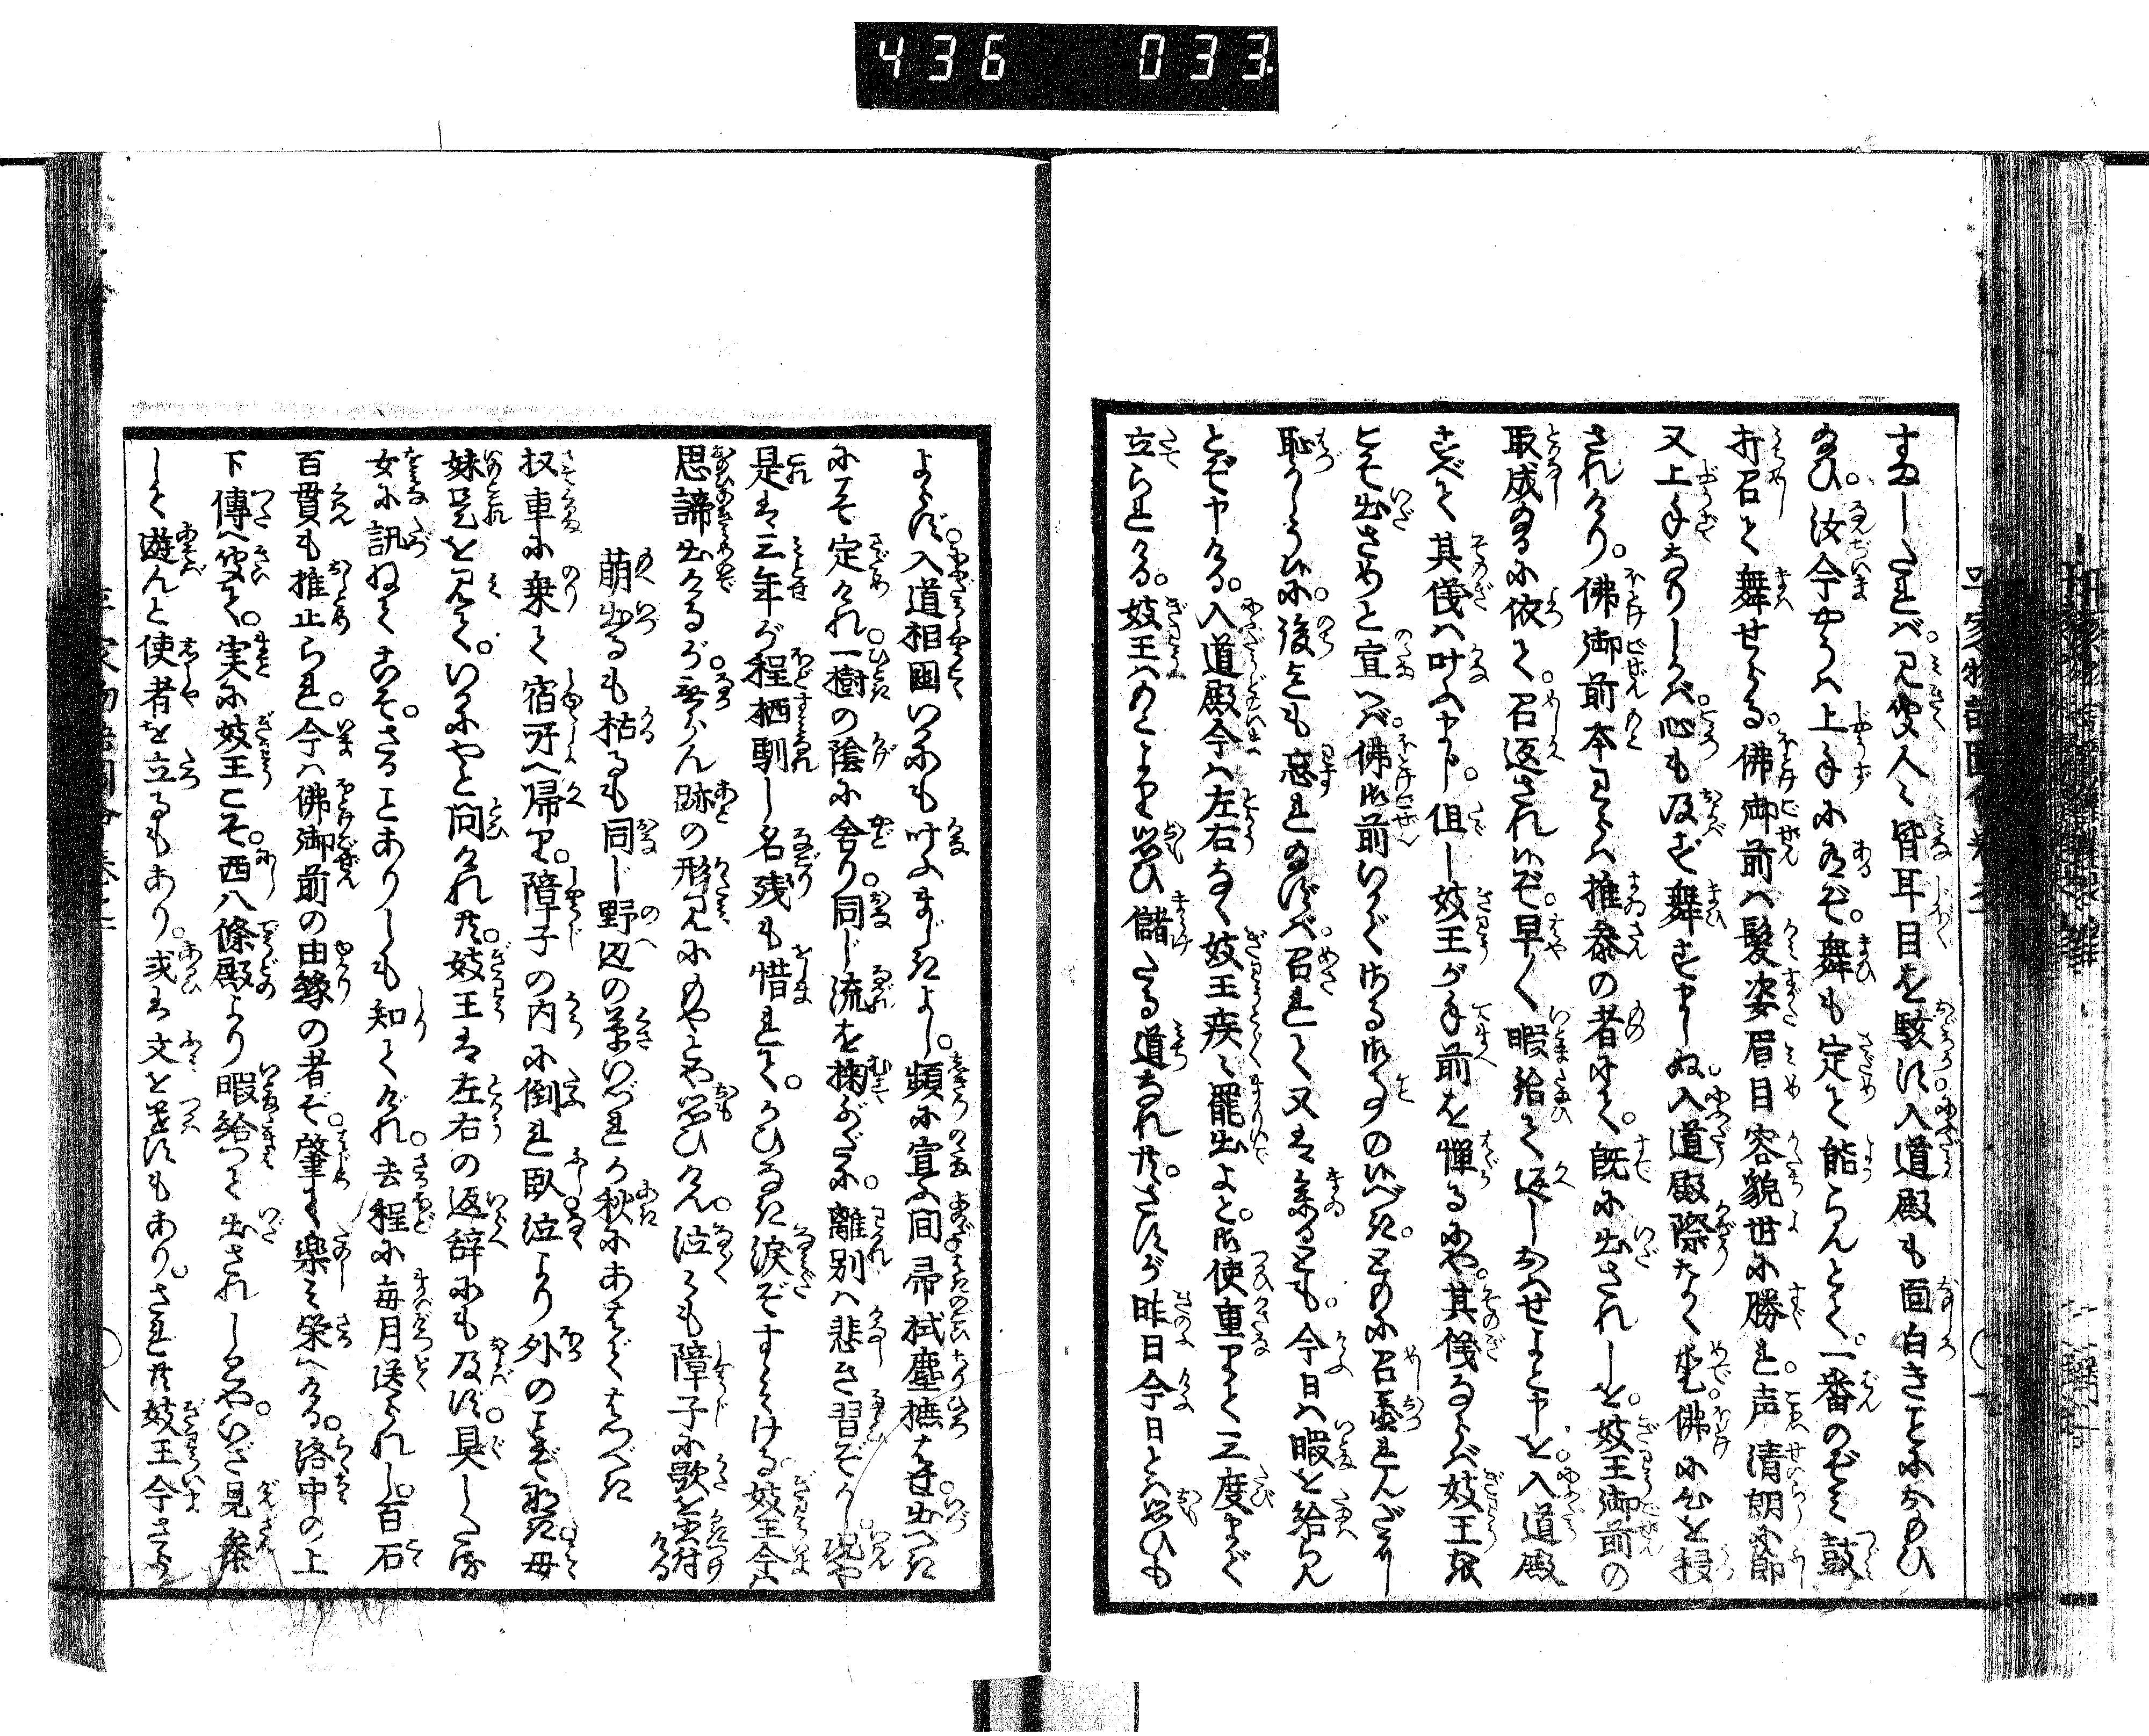 436 033
すましたれバ。見聞人〻皆耳目を駭す。入道殿も面白きことにおもひ
給ひ。汝今やうハ上手に有ぞ。舞も定て能らんとて。一番のぞミ鼓
打召て舞せらる。佛御前ハ髪姿眉目容貌世に勝れ。声清朗に節
又上手なりしかバ。心も及ばず舞すましぬ。入道殿際なく愛。佛に心を移
されけり。佛御前本よりハ推参の者にて。既に出されしを。妓王御前の
取成ゆるに依て。召返されいぞ。早く暇給て返しおハせよと申を入道殿
すべて其儀ハ叶ふまじ。但し妓王が手前を憚るにや。其儀ならバ妓王を
こそ出さめと宣へバ。佛御前いかでさる御事のいべき。ともに召置れんだに
恥かしういに。後までも忘れめさずバ。召れて又ハ参るとも。今日ハ暇を給らん
とぞ申ける。入道殿今ハ左右なく妓王疾〻罷出よと。御使重ねて三度まで
立られける。妓王ハもとより思ひ儲たる道なれ共。さすが昨日今日とハ思ひも
よらず。入道相國いかにも叶ふまじきよし。頻に宣ふ間帚拭塵撫はき出べき
にこそ定けれ。一樹の陰に舎り。同じ流を掬ぶだに。離別ハ悲き習ぞかし。况や
是ハ三年が程栖馴し名残も惜れて。かひなき涙ぞすゝミける。妓王今ハと
思諦出けるが。無らん跡の形見にもやとや思ひけん。泣〻も障子に歌を書付
ける
萌出るも枯るも同じ野辺の草いづれか秋にあはではつべき
扨車に乗て宿所へ帰り。障子の内に倒れ臥泣より外のことぞなき。母
妹是を見て。いかにやと問けれ共。妓王ハ左右の返辞にも及ず。具したる
女に訊ねてこそ。さることありしも知てけれ。去程に毎月送られし。百石
百貫も推止られ。今ハ佛御前の由縁の者ぞ。肇て楽ミ栄へける。洛中の上
下傳へ聞て。実に妓王こそ。西八條殿より暇給つて出されしとや。いざ見參
して遊んと使者を立るもあり。或ハ文を遣すもあり。され共妓王今さら